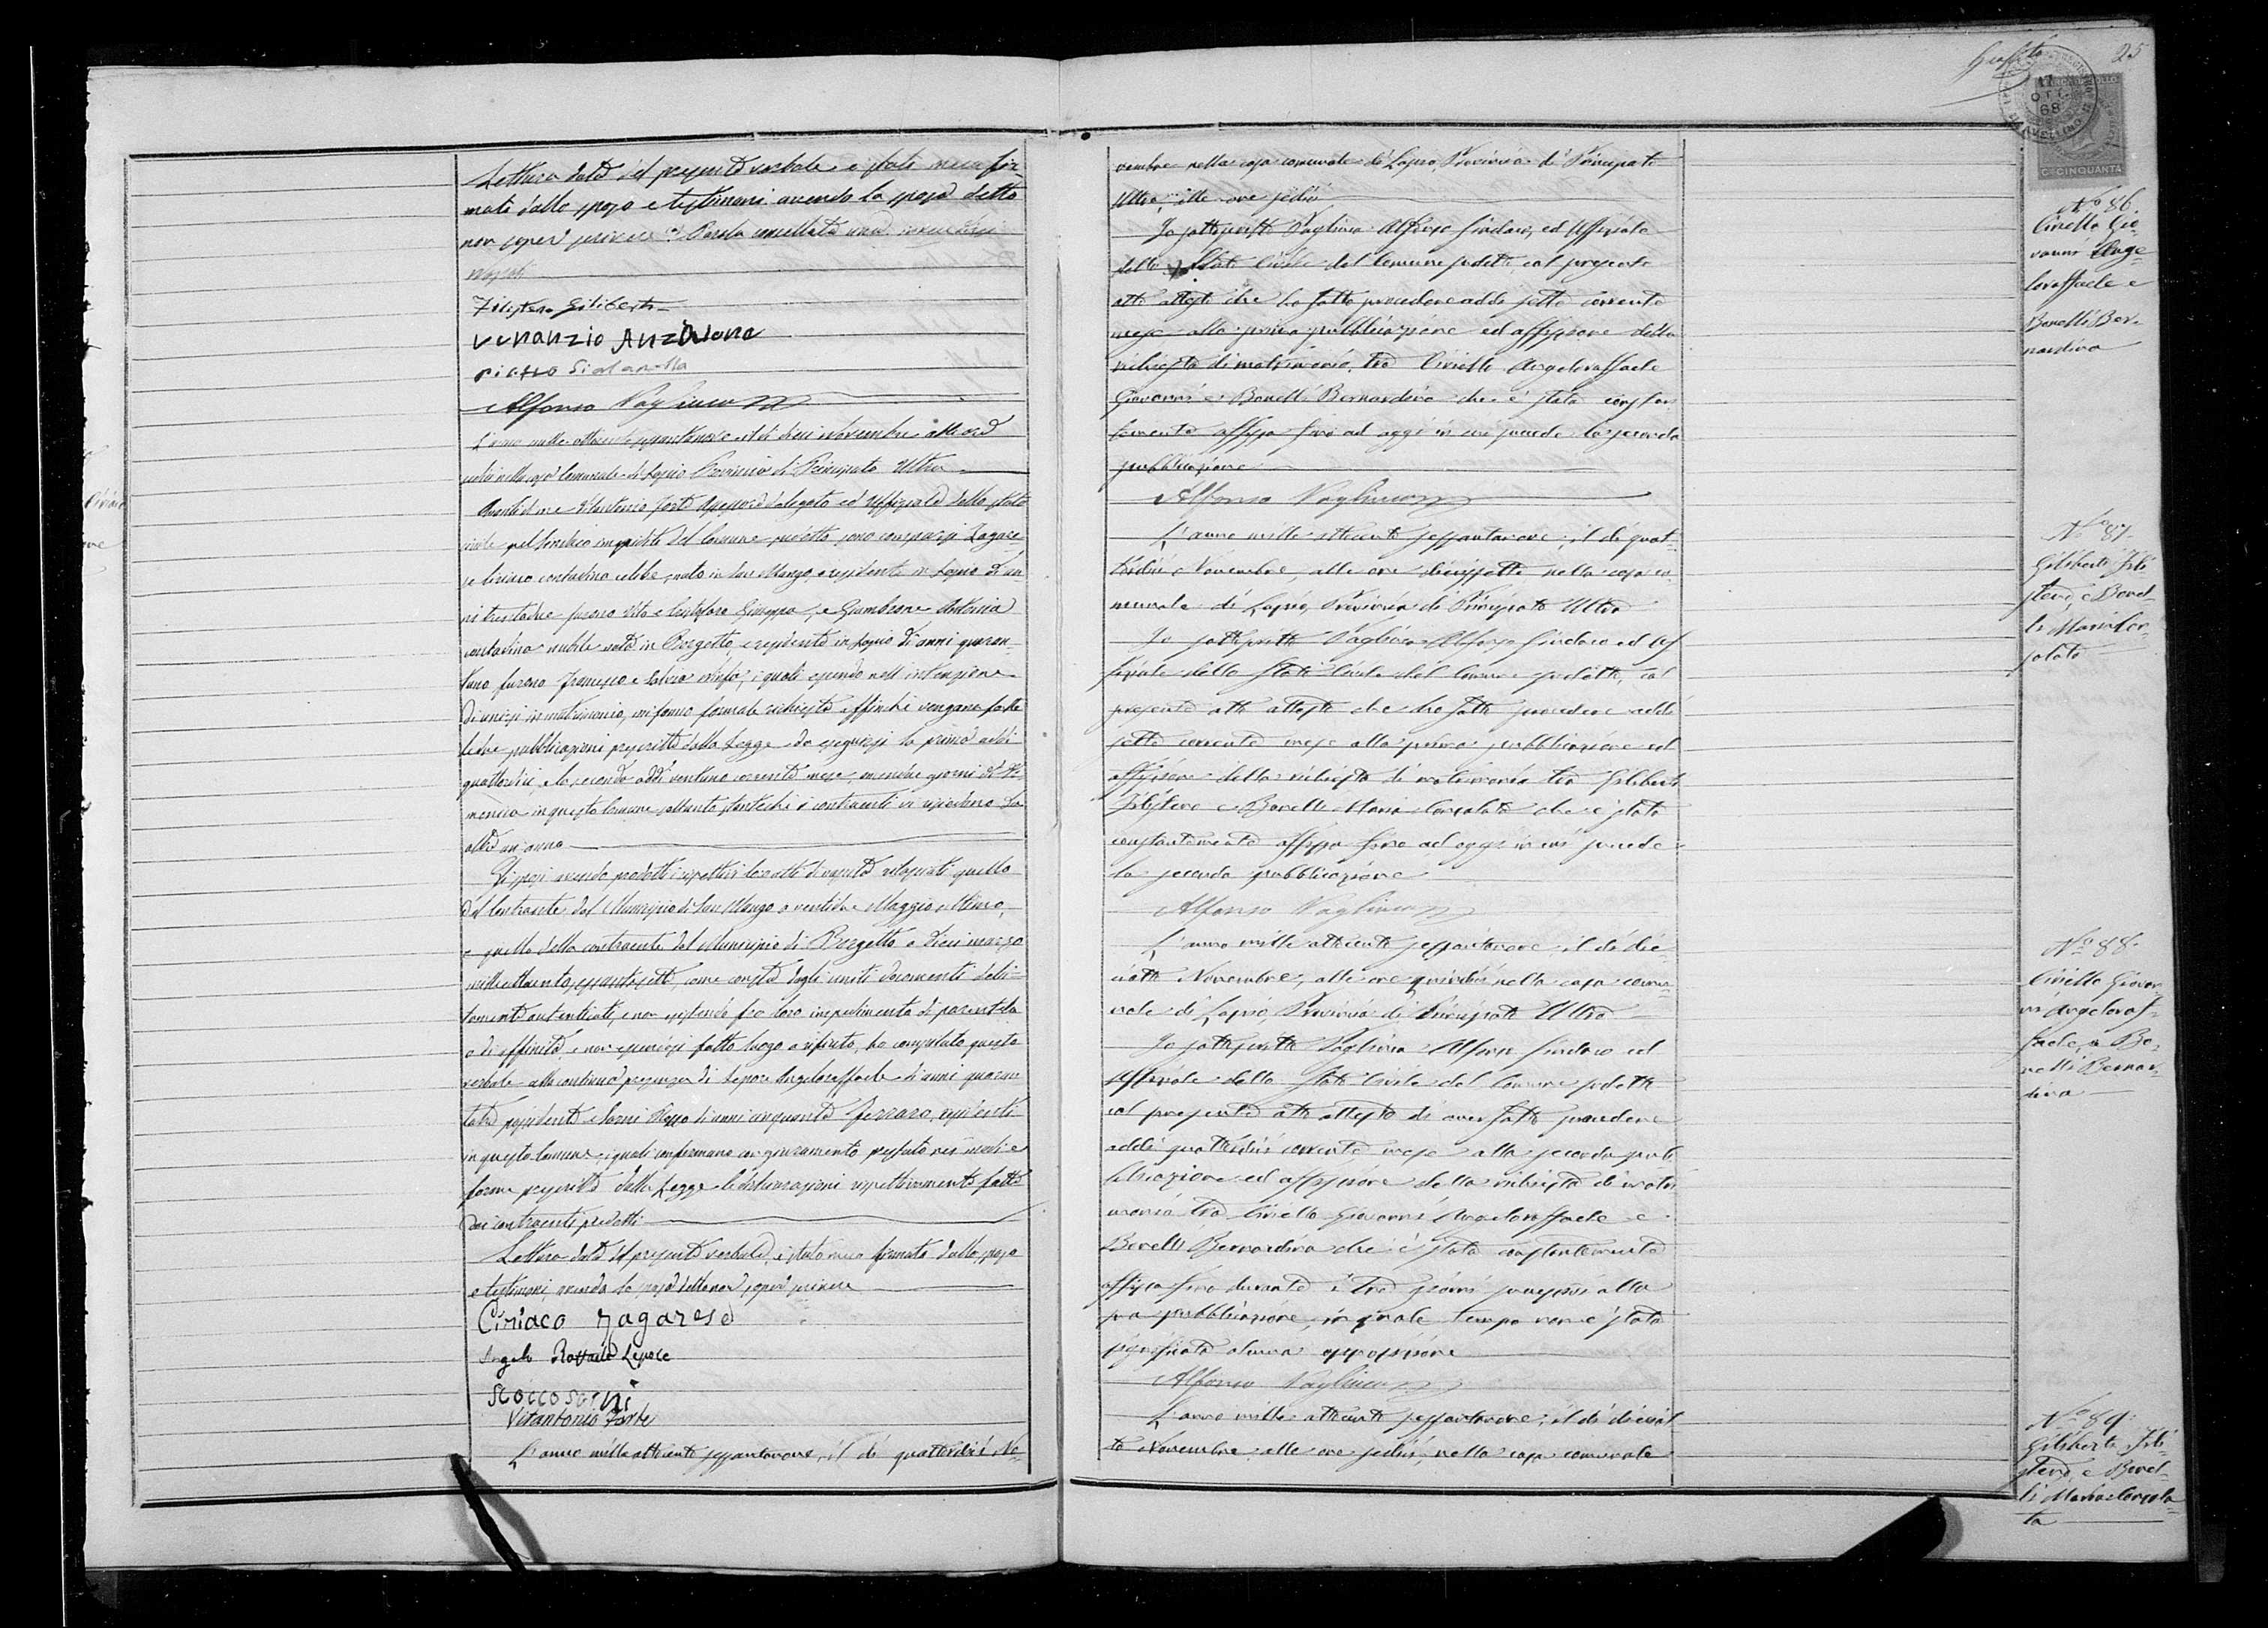 Lettura data del presente verbale è stato meco fir-
mato dallo sposo e testimoni avendo la sposa detto
non saper scrivere Parola cancellata
Filisteno Giliberti
Venanzio Anzalone
Alfonso Vagliuca
L'anno mille ottocento sessantanove il di dieci Novembre alle ore
nella casa Comunale di Lapio Provincia di Principato Ultra
Avanti di me Vitantonio Forte Assessore delegato ed Uffiziale dello stato
civile pel Sindaco impedito del Comune suddetto sono comparsi Zagare-
se Ciriaco contadino celibe, nato in San Mango, e residente in Lapio d'an-
ni trentadue furono Vito e Giuseppa, e Gambone Antonia
contadina nubile nata in e residente in Lapio di anni quaran-
tuno furono Francesco e Salvia, i quali essendo nell'intenzione
di unirsi in matrimonio, mi fanno formale richiesta affinchè vengano fatte
le due pubblicazioni prescritte dalla Legge da eseguirsi la prima addì
quattordici, e la seconda addì ventuno corrente mese amendue giorni di Do-
menica in questo Comune soltanto giacchè i contraenti vi risiedono da
oltre un anno
Gli sposi avendo prodotti i rispettivi loro atti di nascita rilasciati quello
del Contraente dal Municipio di San Mango a ventidue Maggio ultimo,
e quello della contraente dal Municipio di a dieci marzo
mille ottocento sessantasette, come consta dagli uniti documenti debi-
tamente autenticati, e non essendo fra loro impedimento di parentela
o di affinità, e non essersi fatto luogo a rifiuto, ho compilato questo
verbale alla continua presenza di Lepore Angeloraffaele di anni quaran-
tatre possidente e Sarni Rocco di anni cinquanta ferraro, residenti
in questo Comune, i quali confermano con giuramento prestato nei modi e
forme prescritte dalla Legge le dichiarazioni rispettivamente fatte
dai contraenti predetti
Lettura data del presente verbale, è stato meco firmato dallo sposo
e testimoni, avendo la sposa detto non saper scrivere
Ciriaco Zagarese
Angelo Raffaele Lepore
Rocco Sarni
Vitantonio Forte
L'anno mille ottocento sessantanove, il di quattordici No-
25
17
OTT
68
AVELLINO
Ci CINQUANTA
vembre nella casa comunale di Lapio, Provincia di Principato
Ultra, alle ore sedici
Io sottoscritto Vagliuca Alfonso Sindaco, ed Uffiziale
dello Stato Civile del Comune sudetto, col presente
atto attesto che ho fatto procedere addì sette corrente
mese alla prima pubblicazione ed affissione della
richiesta di matrimonio, tra Ciriello Angeloraffaele
Giovanni e Bonelli Bernardina che è stata costan-
temente affissa fino ad oggi in cui procede la seconda
pubblicazione
Alfonso Vagliuca
L'anno mille ottocento sessantanove, il dì quat-
tordici Novembre, alle ore diciassette nella casa co-
munale di Lapio, Provincia di Principato Ultra
Io sottoscritto Vagliuca Alfonso Sindaco ed Uf-
fiziale dello Stato Civile del Comune sudetto, col
presente atto attesto che ho fatto procedere addì
sette corrente mese alla prima pubblicazione ed
affissione della richiesta di matrimonio tra Giliberti
Filisteno e Bonelli Maria Consolata che è stata
constantemente affissa fino ad oggi in cui procede
la seconda pubblicazione
Alfonso Vagliuca
L'anno mille ottocento sessantanove, il dì dic-
iotto Novembre, alle ore quindici nella casa comu-
nale di Lapio, Provincia di Principato Ultra
Io sottoscritto Vagliuca Alfonso Sindaco ed
Uffiziale dello Stato Civile del Comune sudetto
col presente atto attesto di aver fatto procedere
addì quattordici corrente mese alla seconda pub-
blicazione ed affissione della richiesta di matri-
monio tra Ciriello Giovanni Angeloraffaele e
Bonelli Bernardina che è stata constantemente
affissa fino durante i tre giorni successivi alla
sua pubblicazione, in quale tempo non è stata
significata alcuna opposizione
Alfonso Vagliuca
L'anno mille ottocento sessantanove, il dì diciot-
to Novembre alle ore sedici, nella casa comunale
No 86.
Ciriello Gio-
vanni Ange-
loraffaele e
Bonelli Ber-
nardina
No 87.
Giliberti Fili-
steno, e Bonel-
li Maria Con-
solata
No 88.
Ciriello Giovan-
ni Angeloraf-
faele, e Bo-
nelli Bernar-
dina
No 89.
Giliberti Fili-
steno, e Bonel-
li Maria Consola-
ta